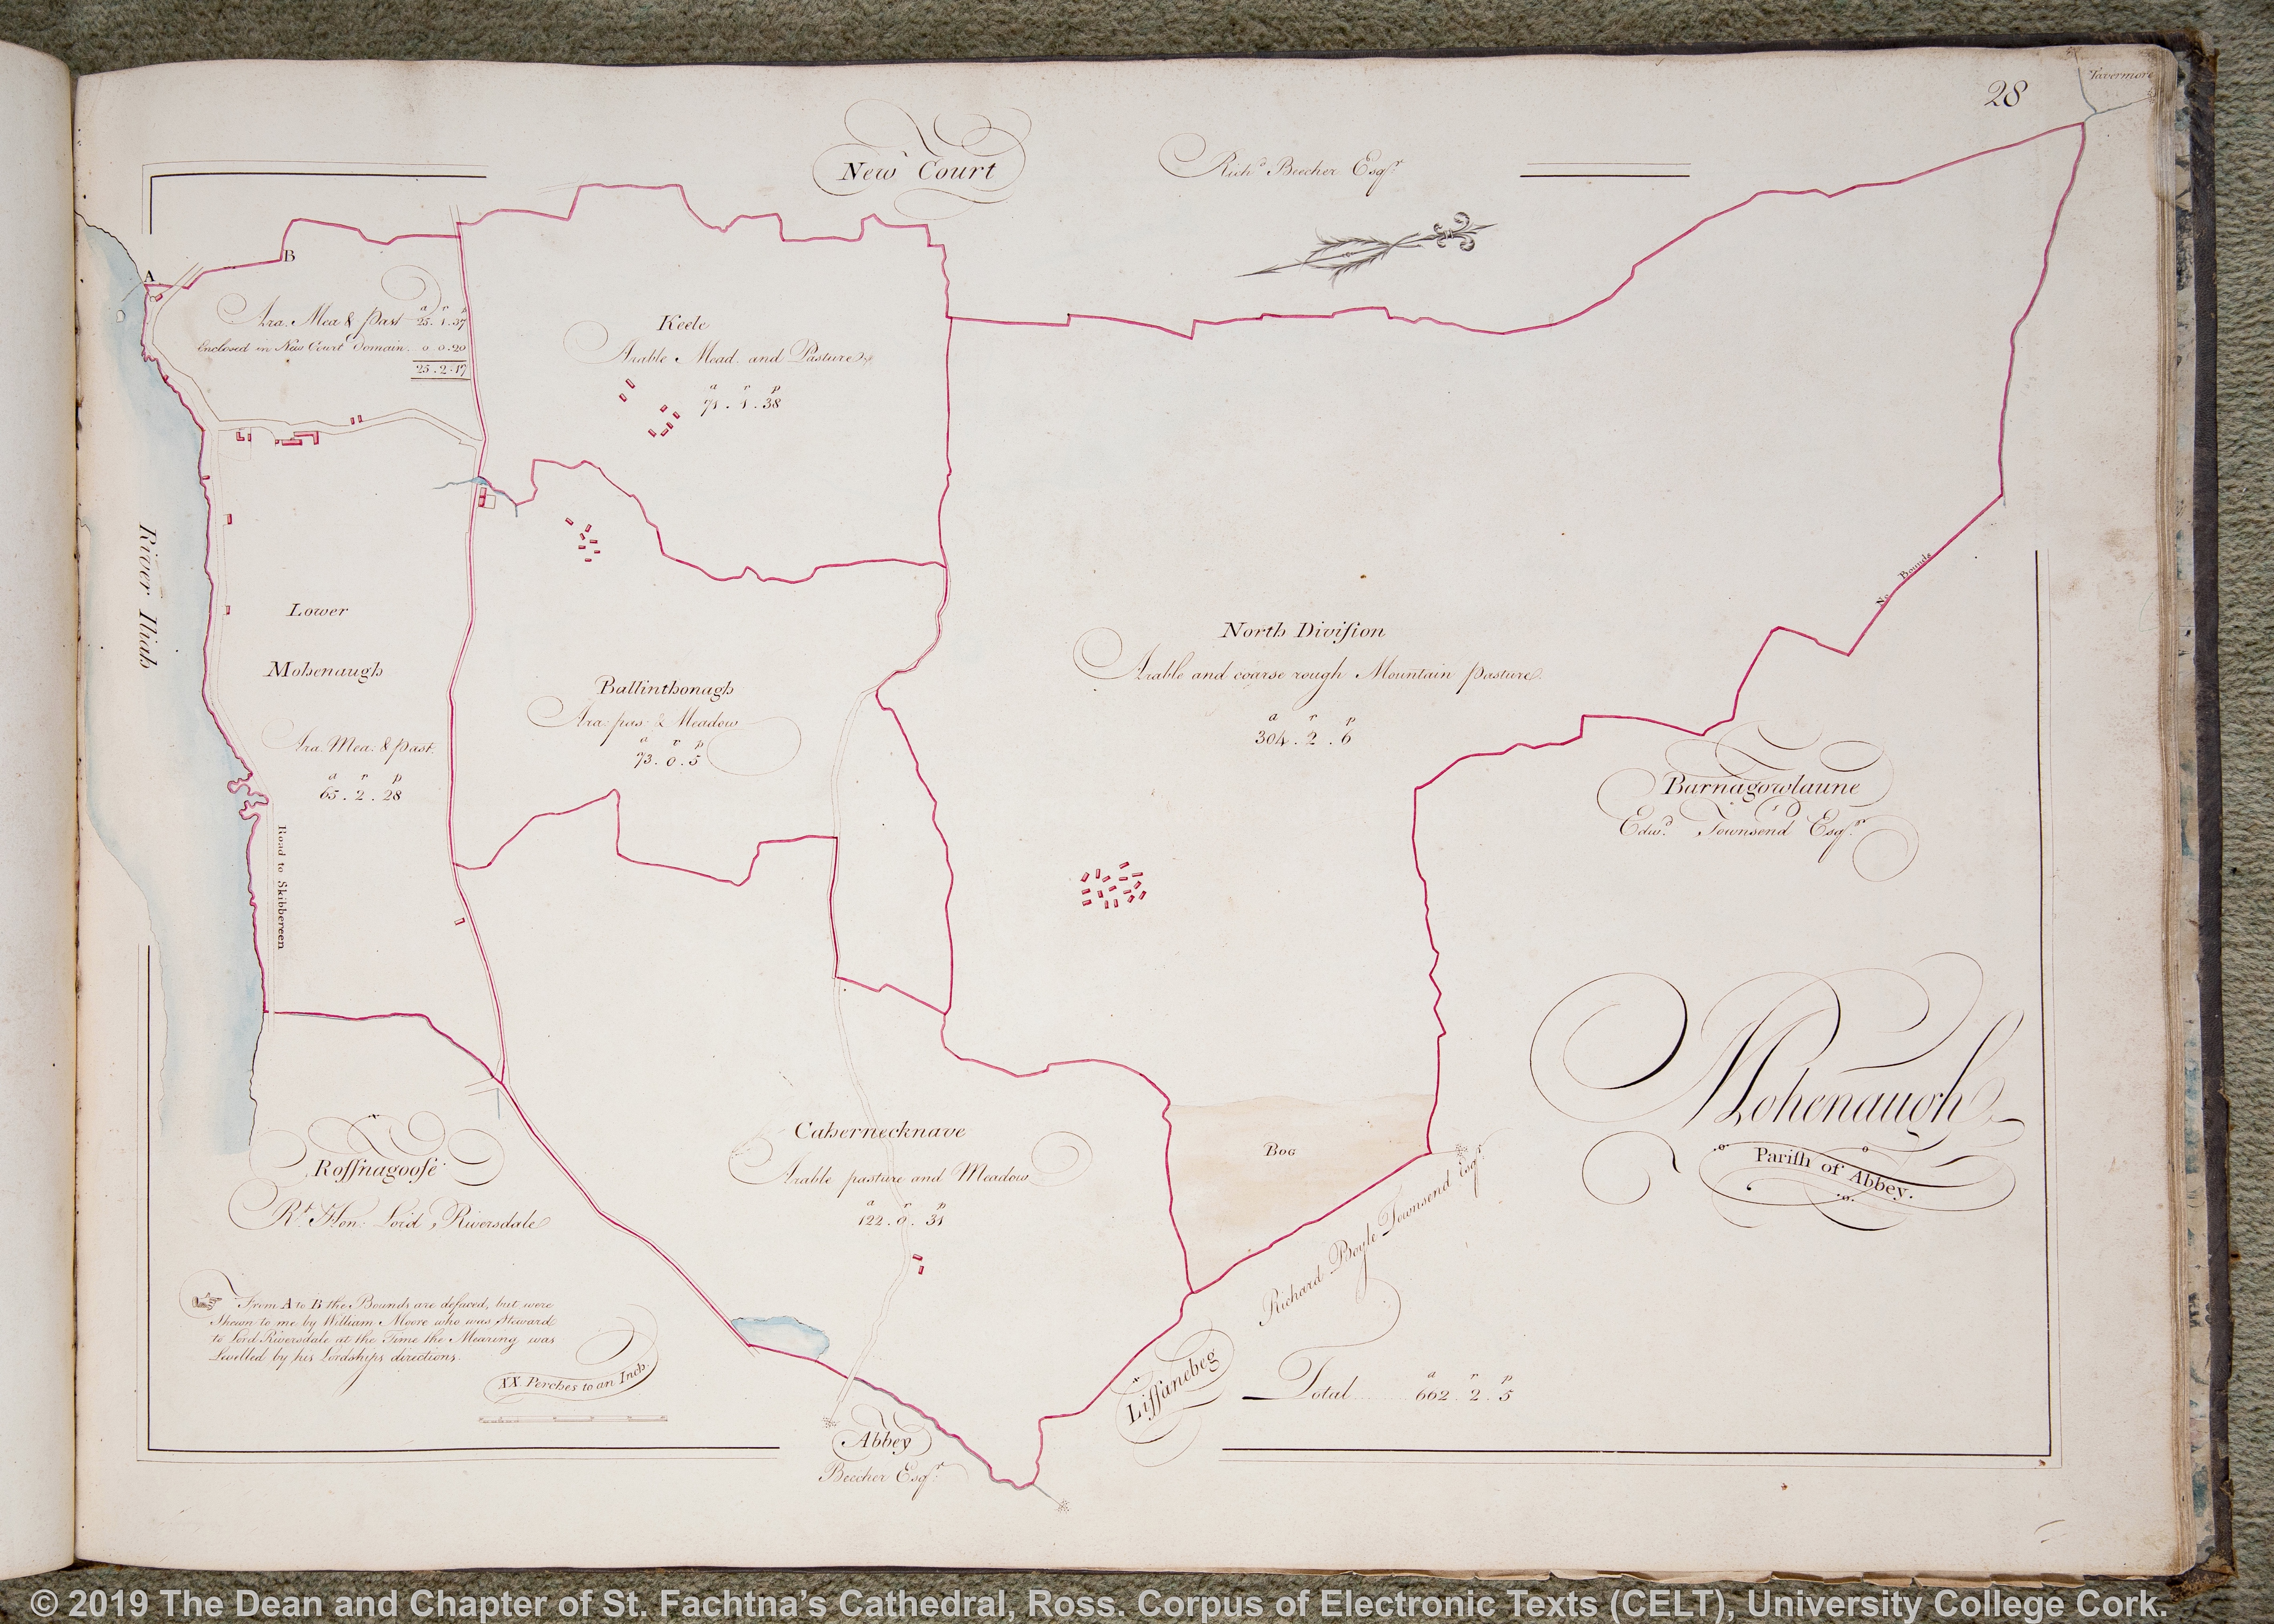 28
Tavermore
New Court
Richd. Beecher Esqr.
A
B
a r p
Ara. Mea & Past 25.1.37
Enclosed in New Court Domain. 0 0.20
25.2.17
Keele
Arable Mead. and Pasture
a r p
71.1.38
River Iliah
Lower
Mohenaugh
Ara. Mea: & past.
a r p
65.2.28
Road to Skibbereen
Ballinthonagh
Ara: pas: & Meadow
a r p
73.0.5
North Division
Arable and coarse rough Mountain pasture
a r p
304.2.6
No Bounds
Barnagowlaune
Edwd. Townsend Esqr.
Mohenaugh
Parish of Abbey.
Bog
Cahernecknave
Arable pasture and Meadow
a r p
122.0.31
Rossnagoose
Rt. Hon: Lord Riversdale
From A to B the Bounds are defaced, but were
Shewn to me by William Moore who was Steward
to Lord Riversdale at the Time the Mearing was
Levelled by his Lordships directions.
XX. Perches to an Inch.
Richard Boyle Townsend Esqr.
Lissanebeg
a r p
Total 662.2.5
Abbey
Beecher Esqr:
© 2019 The Dean and Chapter of St. Fachtna's Cathedral, Ross. Corpus of Electronic Texts (CELT), University College Cork.